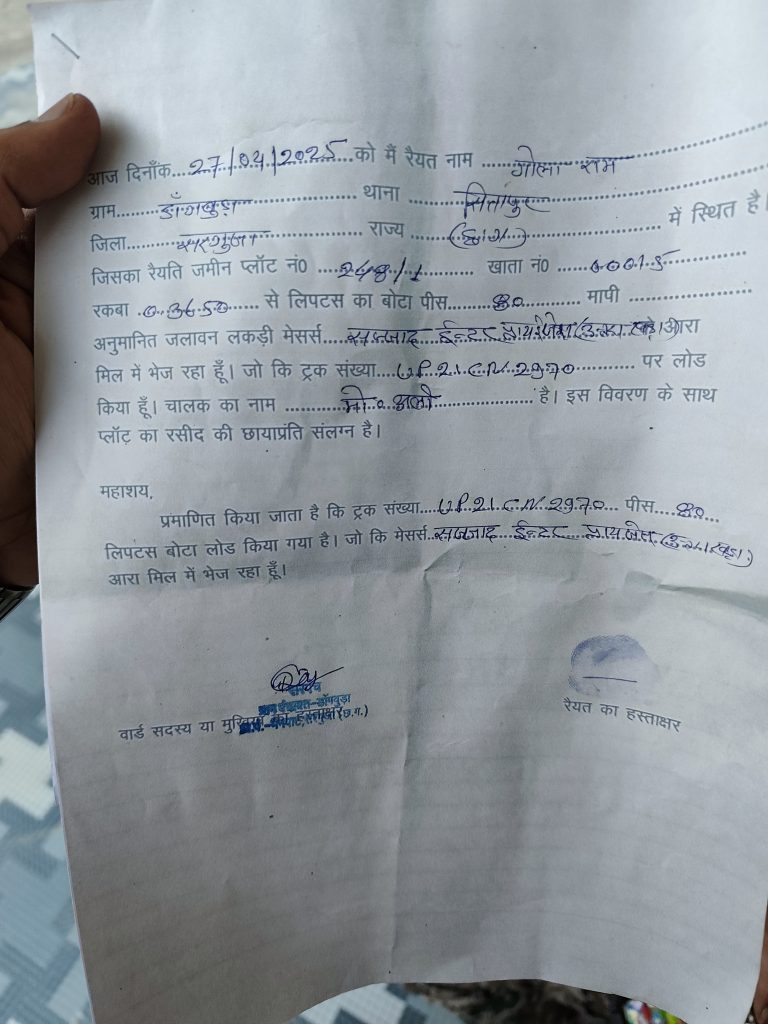 आज दिनाँक...27/04/2025...को मैं रैयत नाम ......गोला राम
ग्राम......डाँगबुड़ा.......... थाना ......सितापुर
जिला......सरगुजा....... राज्य ....(छ०ग०)........ में स्थित है।
जिसका रैयति जमीन प्लॉट नं0 ....248/1........ खाता नं0 ......00015
रकबा .0.3650..... से लिपटस का बोटा पीस......80........ मापी ................
अनुमानित जलावन लकड़ी मेसर्स....सज्जाद ईन्टर प्रायजेस आरा
मिल में भेज रहा हूँ। जो कि ट्रक संख्या...UP.21.CN.2970............ पर लोड
किया हूँ। चालक का नाम .........मो० अली............ है। इस विवरण के साथ
प्लॉट् का रसीद की छायाप्रंति संलग्न है।
महाशय,
प्रमाणित किया जाता है कि ट्रक संख्या...UP.21.CN.2970... पीस...80...
लिपटस बोटा लोड किया गया है। जो कि मेसर्स..सज्जाद ईन्टर प्रायजेस
आरा मिल में भेज रहा हूँ।
सरपंच
ग्राम पंचायत-डाँगबुड़ा
वार्ड सदस्य या मुखिया का हस्ताक्षर (छ.ग.)
रैयत का हस्ताक्षर